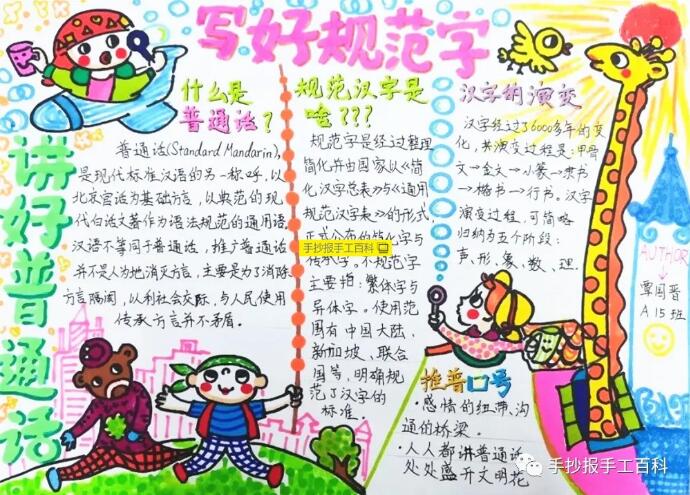 写好规范字
讲好普通话
什么是
普通话？
普通话(Standard Mandarin),
是现代标准汉语的另一称呼,以
北京官话为基础方言,以典范的现
代白话文著作为语法规范的通用语
汉语不等同于普通话,推广普通话
并不是人为地消灭方言,主要是为了消除
方言隔阂,以利社会交际,与人民使用
传承方言并不矛盾。
规范汉字是
啥???
规范字是经过整理
简化并由国家以《简
化汉字总表》与《通用
规范汉字表》的形式
正式公布的简化字与
传承字。不规范字
主要拍:繁体字与
异体字。使用范
围有中国大陆、
新加坡、联合
国等,明确规
范了汉字的
标准。
手抄报手工百科
汉字的演变
汉字经过了6000多年的变
化,其演变过程是:甲骨
文→金文→小篆→隶书
→楷书→行书。汉字
演变过程,可简略
归纳为五个阶段:
声、形、象、数、理。
AUTHOR
↓
覃国晋
A15班
推普口号
·感情的纽带,沟
通的桥梁。
·人人都讲普通话
处处盛开文明花
手抄报手工百科